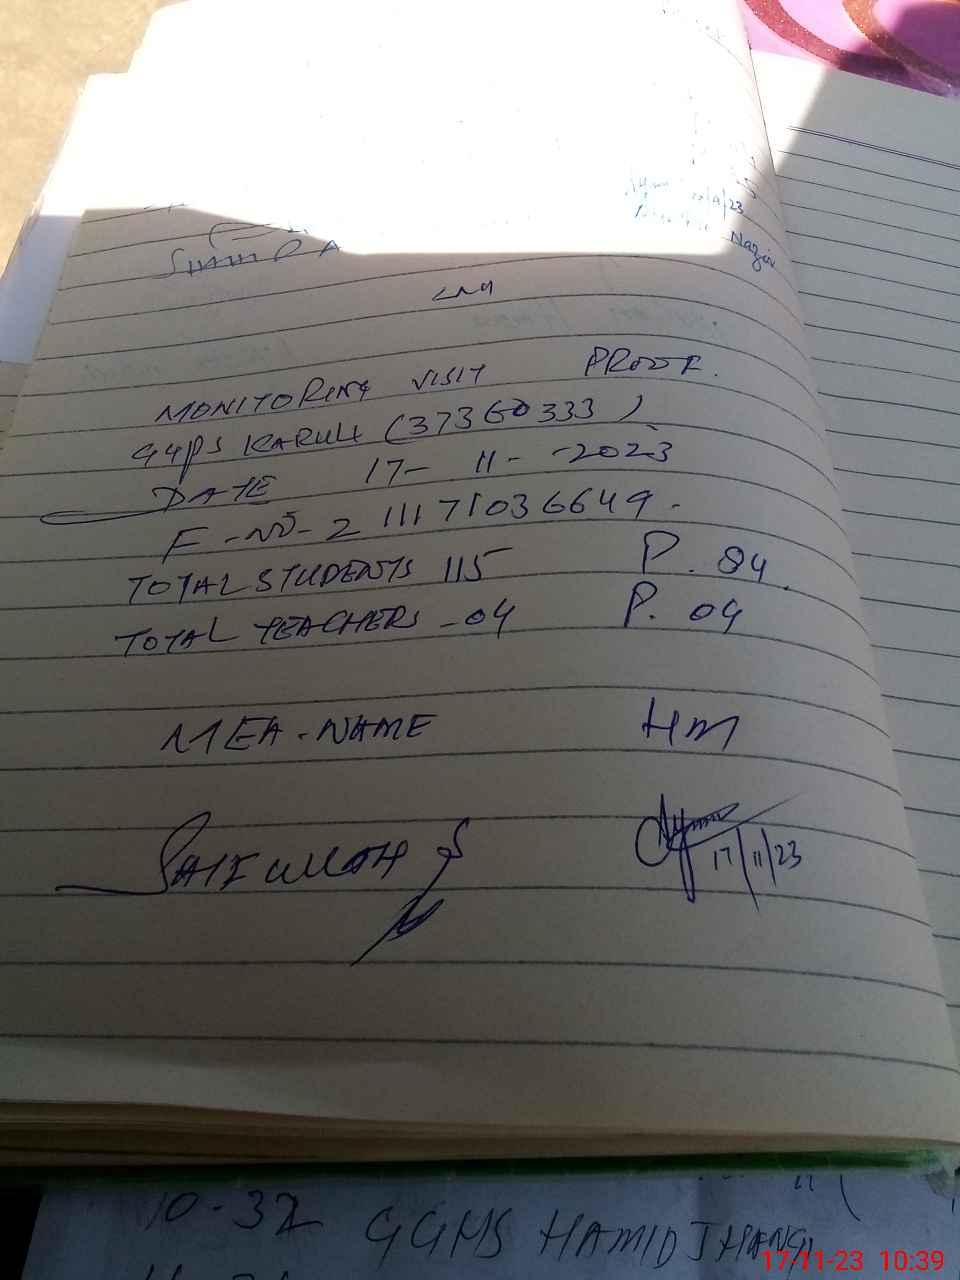 Nazir
MONITORING VISIT PROOF.
GGPS KARULI (37360333)
DATE 17-11-2023
F-NO-2 11171036649.
TOTAL STUDENTS 115 P. 84.
TOTAL TEACHERS-04 P. 04
MEA-NAME HM
SAIFULLAH
17/11/23
10-32 GGHS HAMID JHANGI
17-11-23 10:39